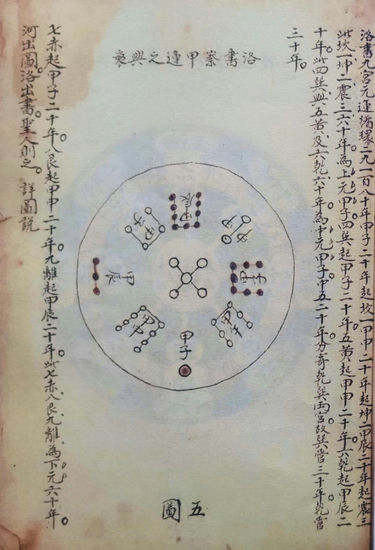 洛書九宮元運循環一九一百八十年甲子二十年起坎一甲申二十年起坤二甲辰二十年起震三
此坎一坤二震三六十年為上元甲子四巽起甲子二十年五黃起甲申二十年六乾起甲辰二
十年此四巽與五黃及六乾六十年為中元甲子甲五二十年分寄乾巽兩宮故巽管三十年乾管
三十年
洛書察甲運之興衰
甲辰
甲申
甲子
甲子
甲辰
甲申
甲子
圖五
七赤起甲子二十年八艮起甲申二十年九離起甲辰二十年此七赤八艮九離為下元六十年
河出圖洛出書聖人則之 詳圖說